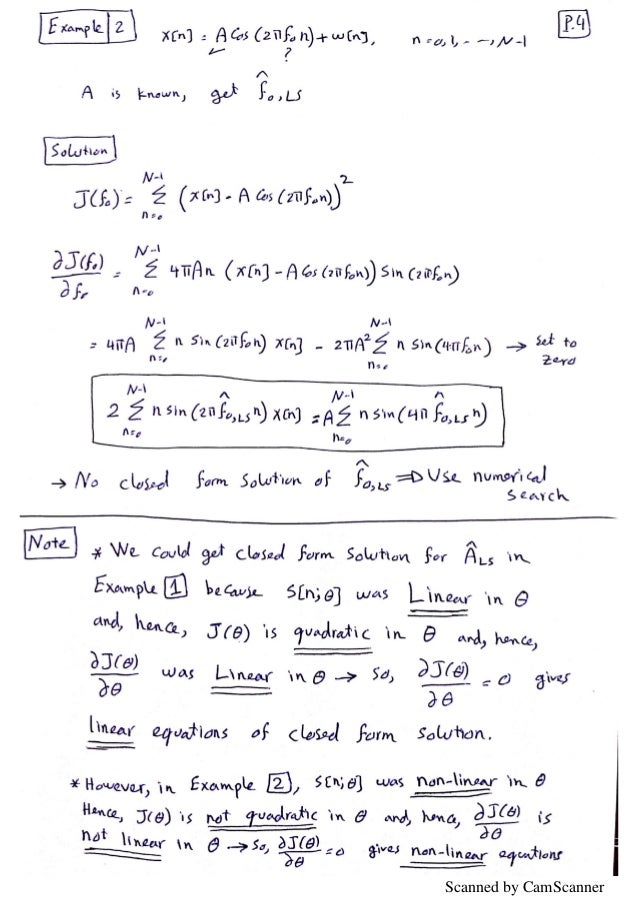 Example 2 x[n] = A Cos (2πf₀n) + w[n], n = 0, 1, - - -, N-1 P.4
?
A is known, get f̂₀,LS
Solution
J(f₀) = Σ_{n=0}^{N-1} (x[n] - A Cos (2πf₀n))²
∂J(f₀)/∂f₀ = Σ_{n=0}^{N-1} 4πAn (x[n] - A Cos (2πf₀n)) Sin (2πf₀n)
= 4πA Σ_{n=0}^{N-1} n Sin (2πf₀n) x[n] - 2πA² Σ_{n=0}^{N-1} n Sin (4πf₀n) → Set to
zero
2 Σ_{n=0}^{N-1} n sin (2π f̂₀,LS n) x[n] = A Σ_{n=0}^{N-1} n sin (4π f̂₀,LS n)
→ No closed form solution of f̂₀,LS ⇒ Use numerical
search
Note * We could get closed form solution for Â_LS in
Example 1 because S[n;θ] was Linear in θ
and, hence, J(θ) is quadratic in θ and, hence,
∂J(θ)/∂θ was Linear in θ → So, ∂J(θ)/∂θ = 0 gives
linear equations of closed form solution.
* However, in Example 2, S[n;θ] was non-linear in θ
Hence, J(θ) is not quadratic in θ and, hence, ∂J(θ)/∂θ is
not linear in θ → So, ∂J(θ)/∂θ = 0 gives non-linear equations
Scanned by CamScanner